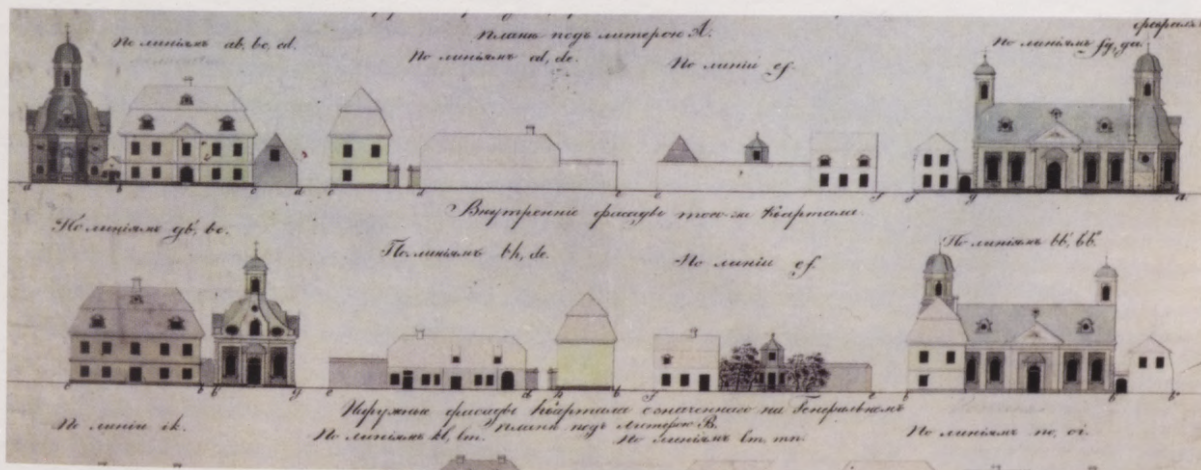 планѣ подъ литерою А.
По линіямъ ab, bc, cd.
По линіямъ cd, de.
По линіи ef.
По линіямъ fg, ga.
a b c d d e e f g g a
Внутренніе фасады того-же Квартала
По линіямъ gb, bc.
По линіямъ bh, de.
По линіи ef.
По линіямъ bb, bb
Наружные фасады Квартала означеннаго на Генеральномъ
планѣ подъ литерою В.
По линіи ik.
По линіямъ kl, lm.
По линіямъ lm, mn.
По линіямъ no, oi.